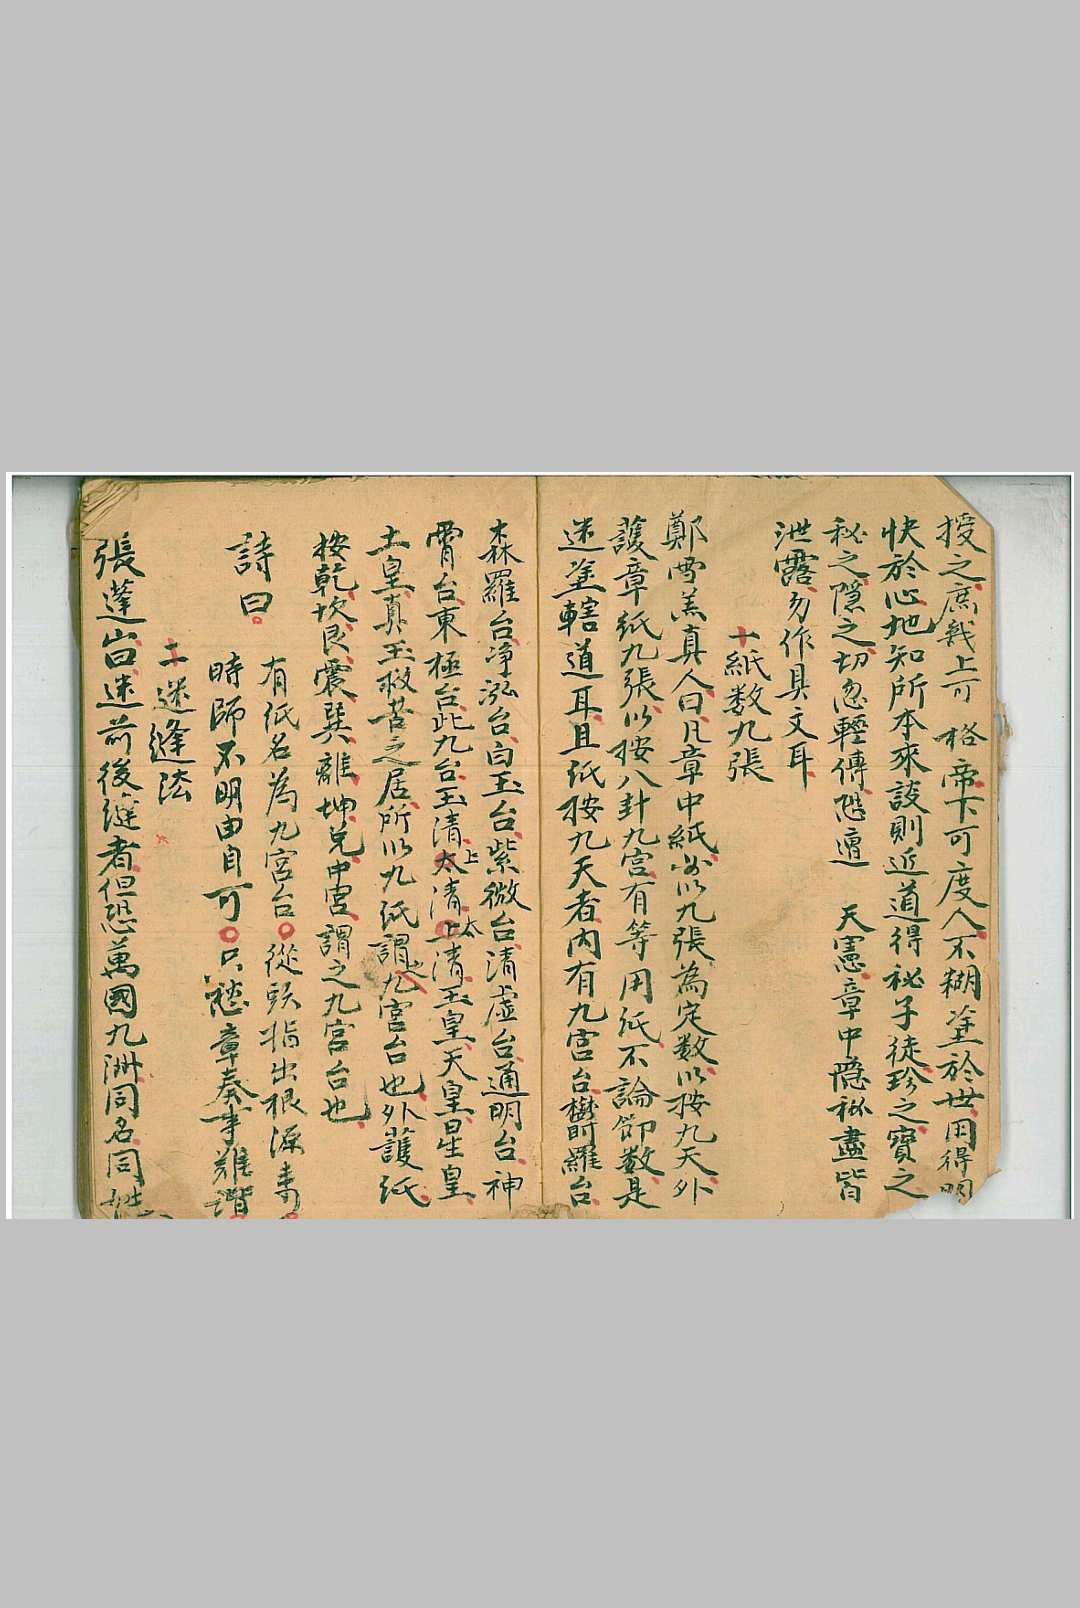 授之庶幾上可格帝下可度人不糊塗於世用得明
快於心地知所本來設則近道得秘子徒珍之寶之
秘之隱之切忽輕傳愆違天憲章中隱秘盡皆
泄露勿作具文耳
十紙数九張
鄭雪羔真人曰凡章中紙必以九張為定数以按九天外
護章紙九張以按八卦九宮有等用紙不論節数是
迷塗轄道耳且纸按九天者内有九宮台欝羅台
森羅台净泓台白玉台紫微台清虚台通明台神
霄台東極台此九台玉清上太清太上清玉皇天皇星皇
土皇真王救苦之居所以九纸謂之九宮台也外護紙
按乾坎艮震巽離坤兑中宮謂之九宮台也
詩曰
有低名為九宮台從頭指出根源書
時師不明由自可只愁章奏事難谐
二迷缝法
張蓬山曰迷前後縫者但恐萬國九洲同名同姓